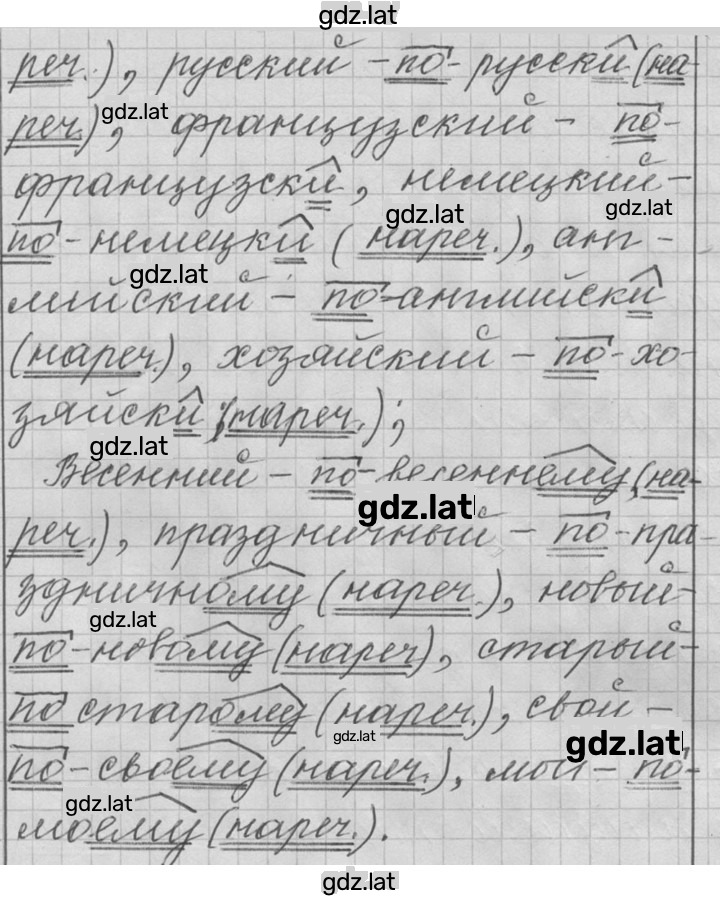 gdz.lat
реч.), русский - по-русски (на
реч.), французский - по-
gdz.lat
французски, немецкий -
gdz.lat
gdz.lat
по-немецки (нареч.), анг-
gdz.lat
лийский - по-английски
(нареч.), хозяйский - по-хо-
зяйски (нареч.);
gdz.lat
Весенний - по-весеннему (на-
gdz.lat
реч.), праздничный - по-пра-
здничному (нареч.), новый -
gdz.lat
по-новому (нареч), старый -
по старому (нареч.), свой -
gdz.lat
gdz.lat
по-своему (нареч.), мой - по-
gdz.lat
моему (нареч.).
gdz.lat